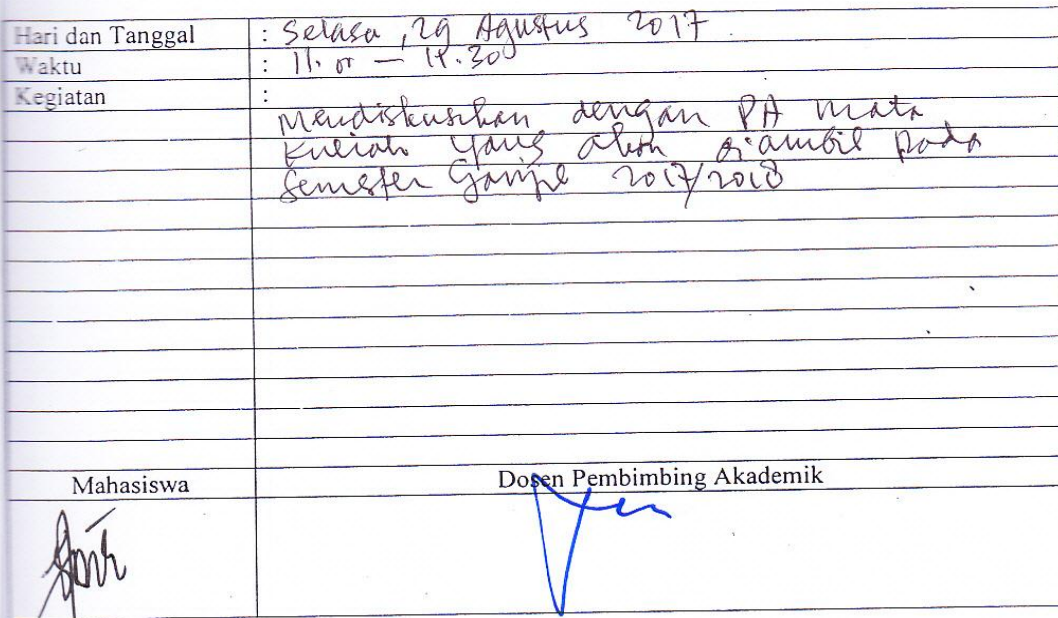 Hari dan Tanggal : Selasa, 29 Agustus 2017
Waktu : 11.00 – 14.300
Kegiatan :
Mendiskusikan dengan PA mata
kuliah yang akan diambil pada
Semester Ganjil 2017/2018
Mahasiswa
Dosen Pembimbing Akademik